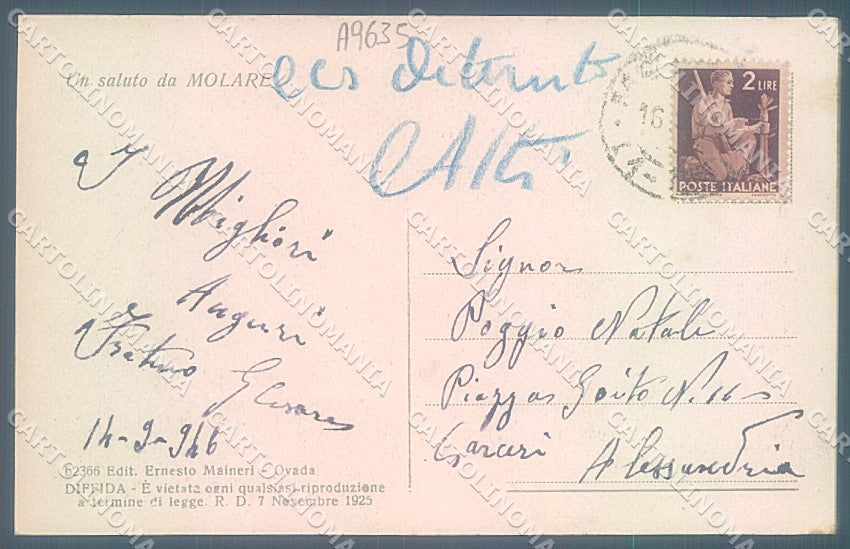 A9635
Un saluto da MOLARE
ex Detenuto
Altri
2 LIRE
POSTE ITALIANE
16
I Migliori
Auguri
Cesare
14-9-946
Signor
Poggio Natale
Piazza Goito N. 16
Carceri
Alessandria
62366 Edit. Ernesto Maineri - Ovada
DIFFIDA - È vietata ogni qualsiasi riproduzione
a termine di legge. R. D. 7 Novembre 1925
CARTOLINOMANIA